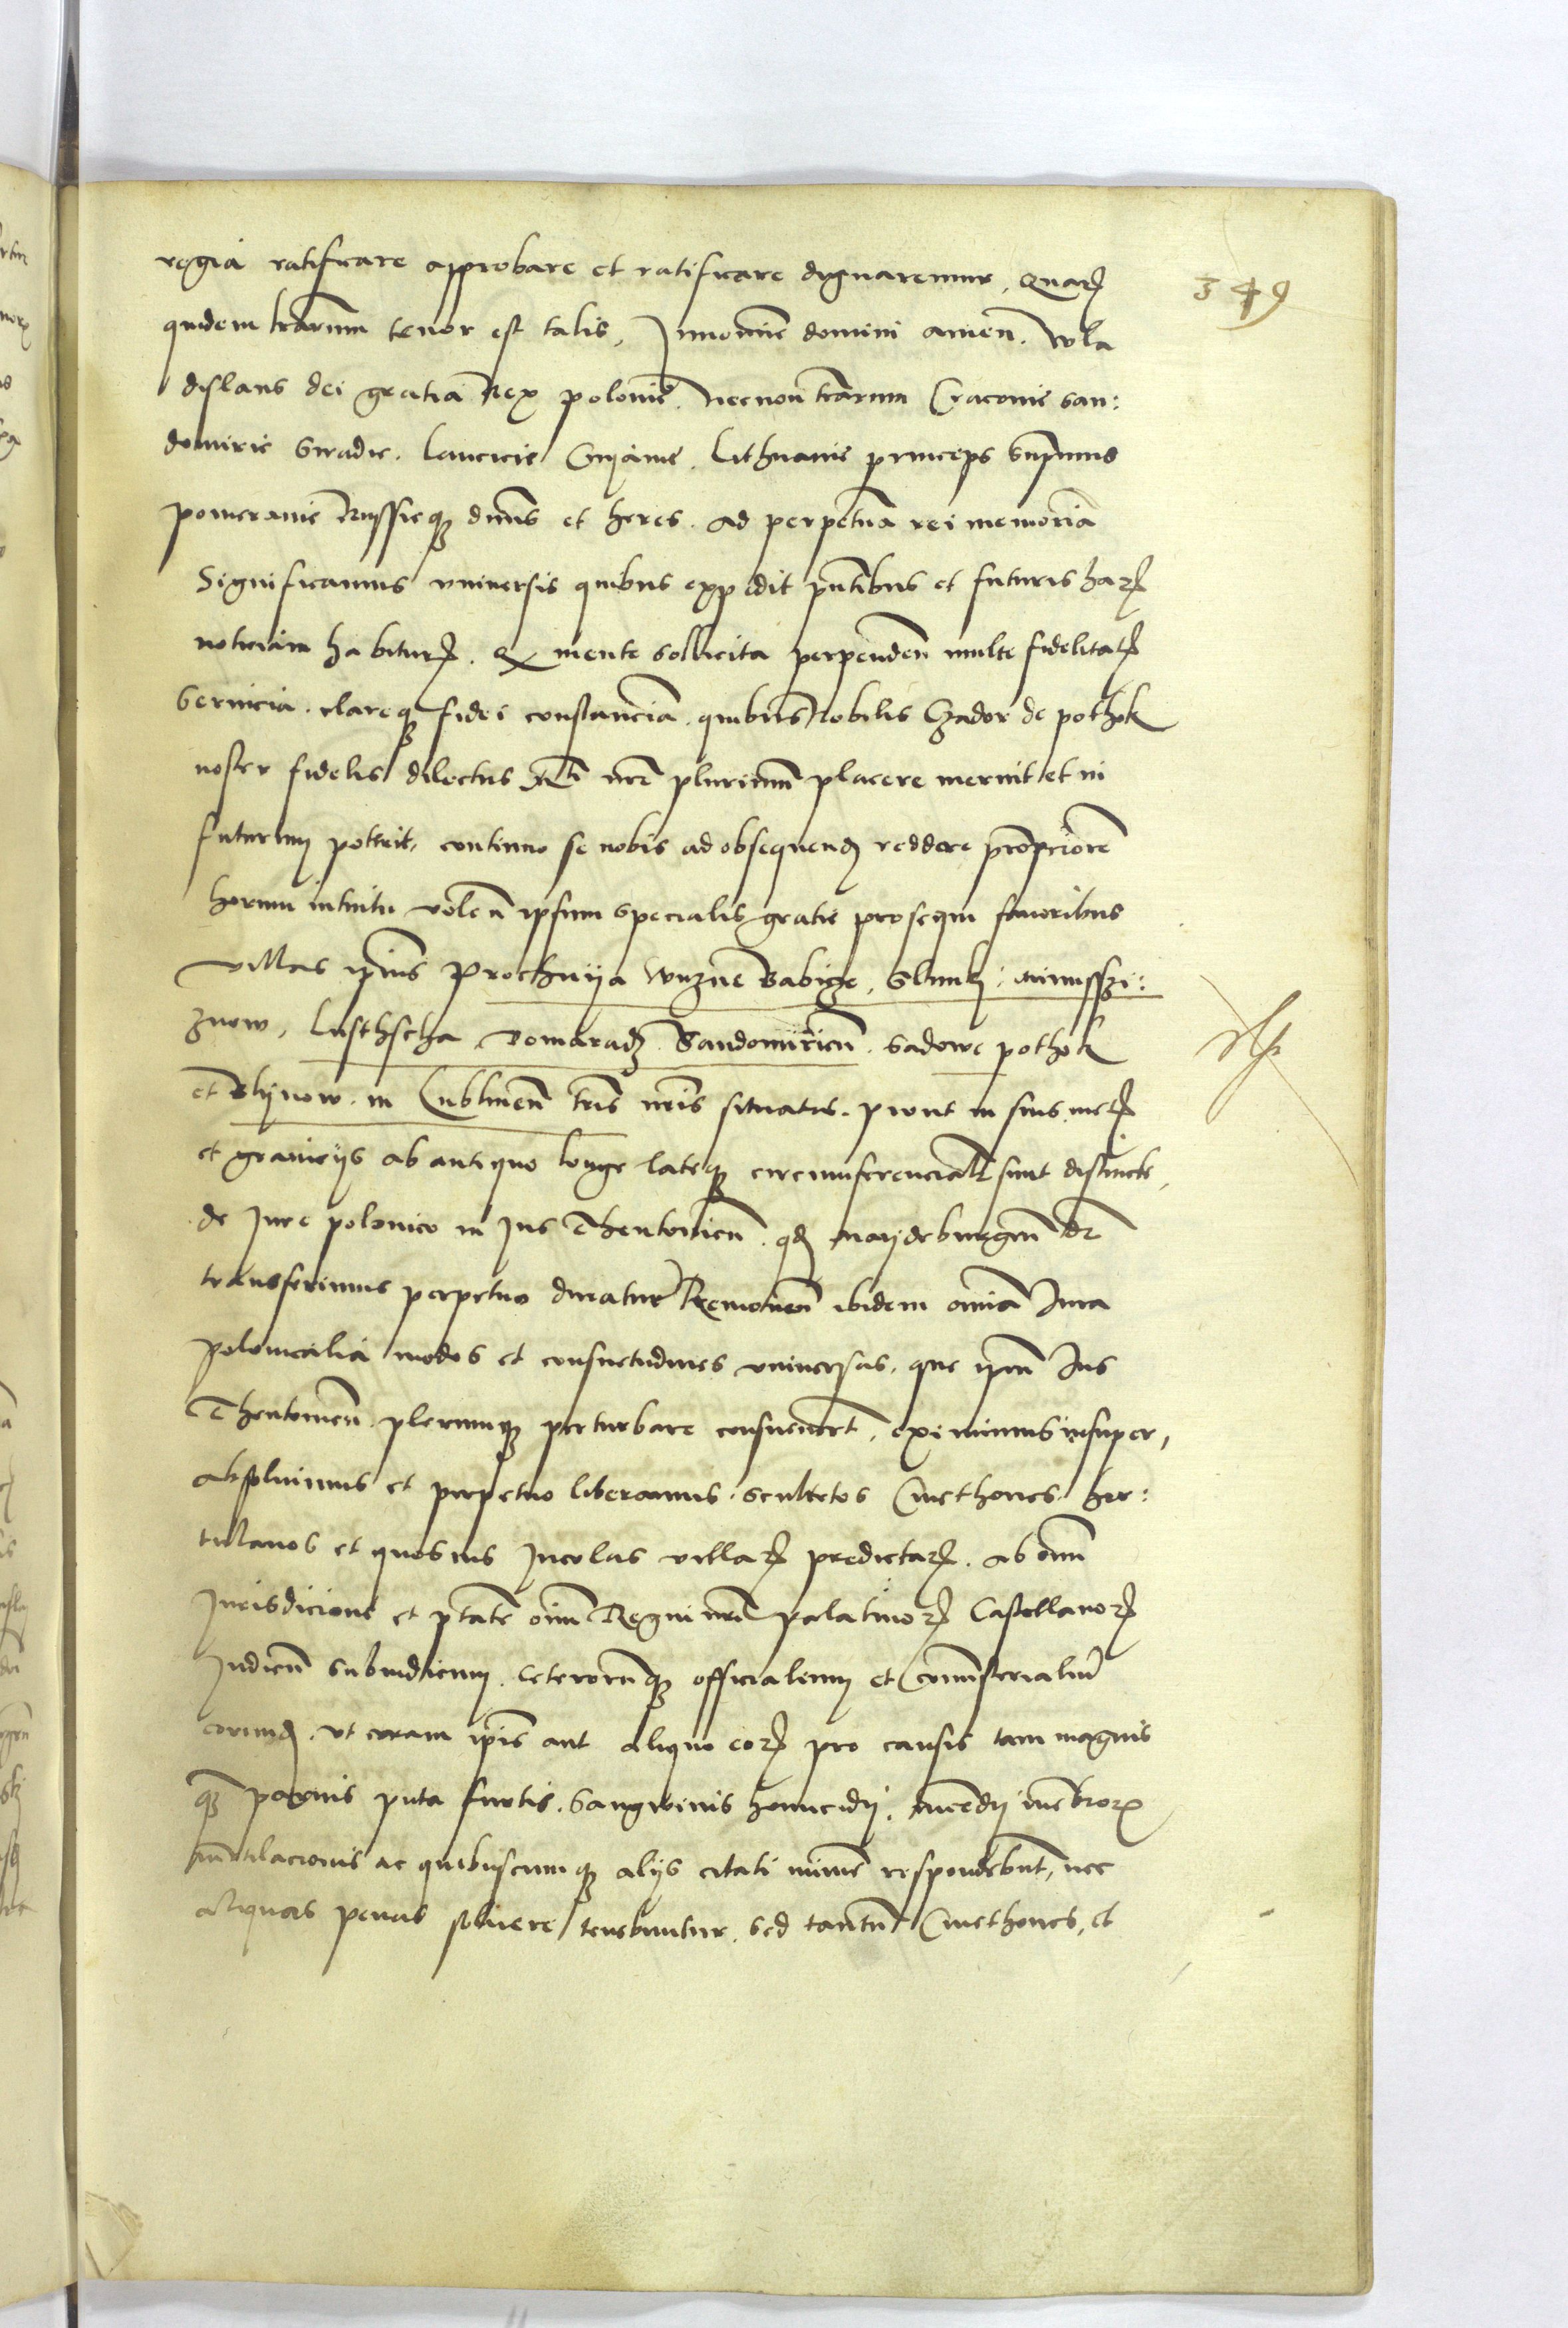 regia ratificare approbare et ratificare dignaremur, Quarꝝ
349
quidem lrarum tenor est talis, Innomine domini amen. Wla
dislaus dei gratia Rex polonie. Necnon trarum Cracouie san:
domirie Siradie. lancicie Cuyauie. Lithuanie princeps Supmus
pomeranie Russieqꝫ dnus et heres. ad perpetua rei memoria
Significamus vniuersis quibus expedit pntibus et futuris harꝝ
noticiam habiturꝭ. Q mente sollicita perpenden multe fidelitatꝭ
Seruicia. clareqꝫ fidei constancia. quibus Nobilis Czador de pothok
noster fidelis dilectus nre plurimum placere meruit et in
futurum poterit, continuo se nobis ad obsequenꝺ reddere promptiore
horum intuitu volen ipsum specialis gratie prosequi fauoribus
villas ipius Prochniya Wuzne Babicze, Slunki,
znow, lusthscha Domaradz Sandomirien. Sadowe pothok
et Blijnow. in Lublinen tris nris situatas. prout in suis metꝭ
et graniciis ab antiquo longe lateqꝫ circumferencialr sunt distincte,
de Jure polonico in Jus Theutonicu. qꝺ maydeburgen dr
transferimus perpetuo duratur Remouen ibidem omia Jura
polonicalia modos et consuetudines vniuersas. que ipm Jus
Theutonicu plerumqꝫ perturbare consueuert, eximimus insuper,
absoluimus et perpetuo liberamus. scultetos Cmethones hor:
tulanos et quosuis Incolas villarꝝ predictarꝝ. ab omi
Jurisdicione et ptate oim Regni nri palatinorꝝ Castellanorꝝ
Judicu Subiudicum. Ceterorumqꝫ officialium et ministerialium
eorundꝫ. vt coram ipis aut aliquo eorꝝ pro causis tam magnis
qꝫ paruis puta furtis. Sangwinis homicidij. Incendij mebrorꝝ
mutilacionis ac quibuscumqꝫ alijs citati minime respondebunt, nec
aliquas penas soluere tenebuntur. sed tantum Cmethones, et